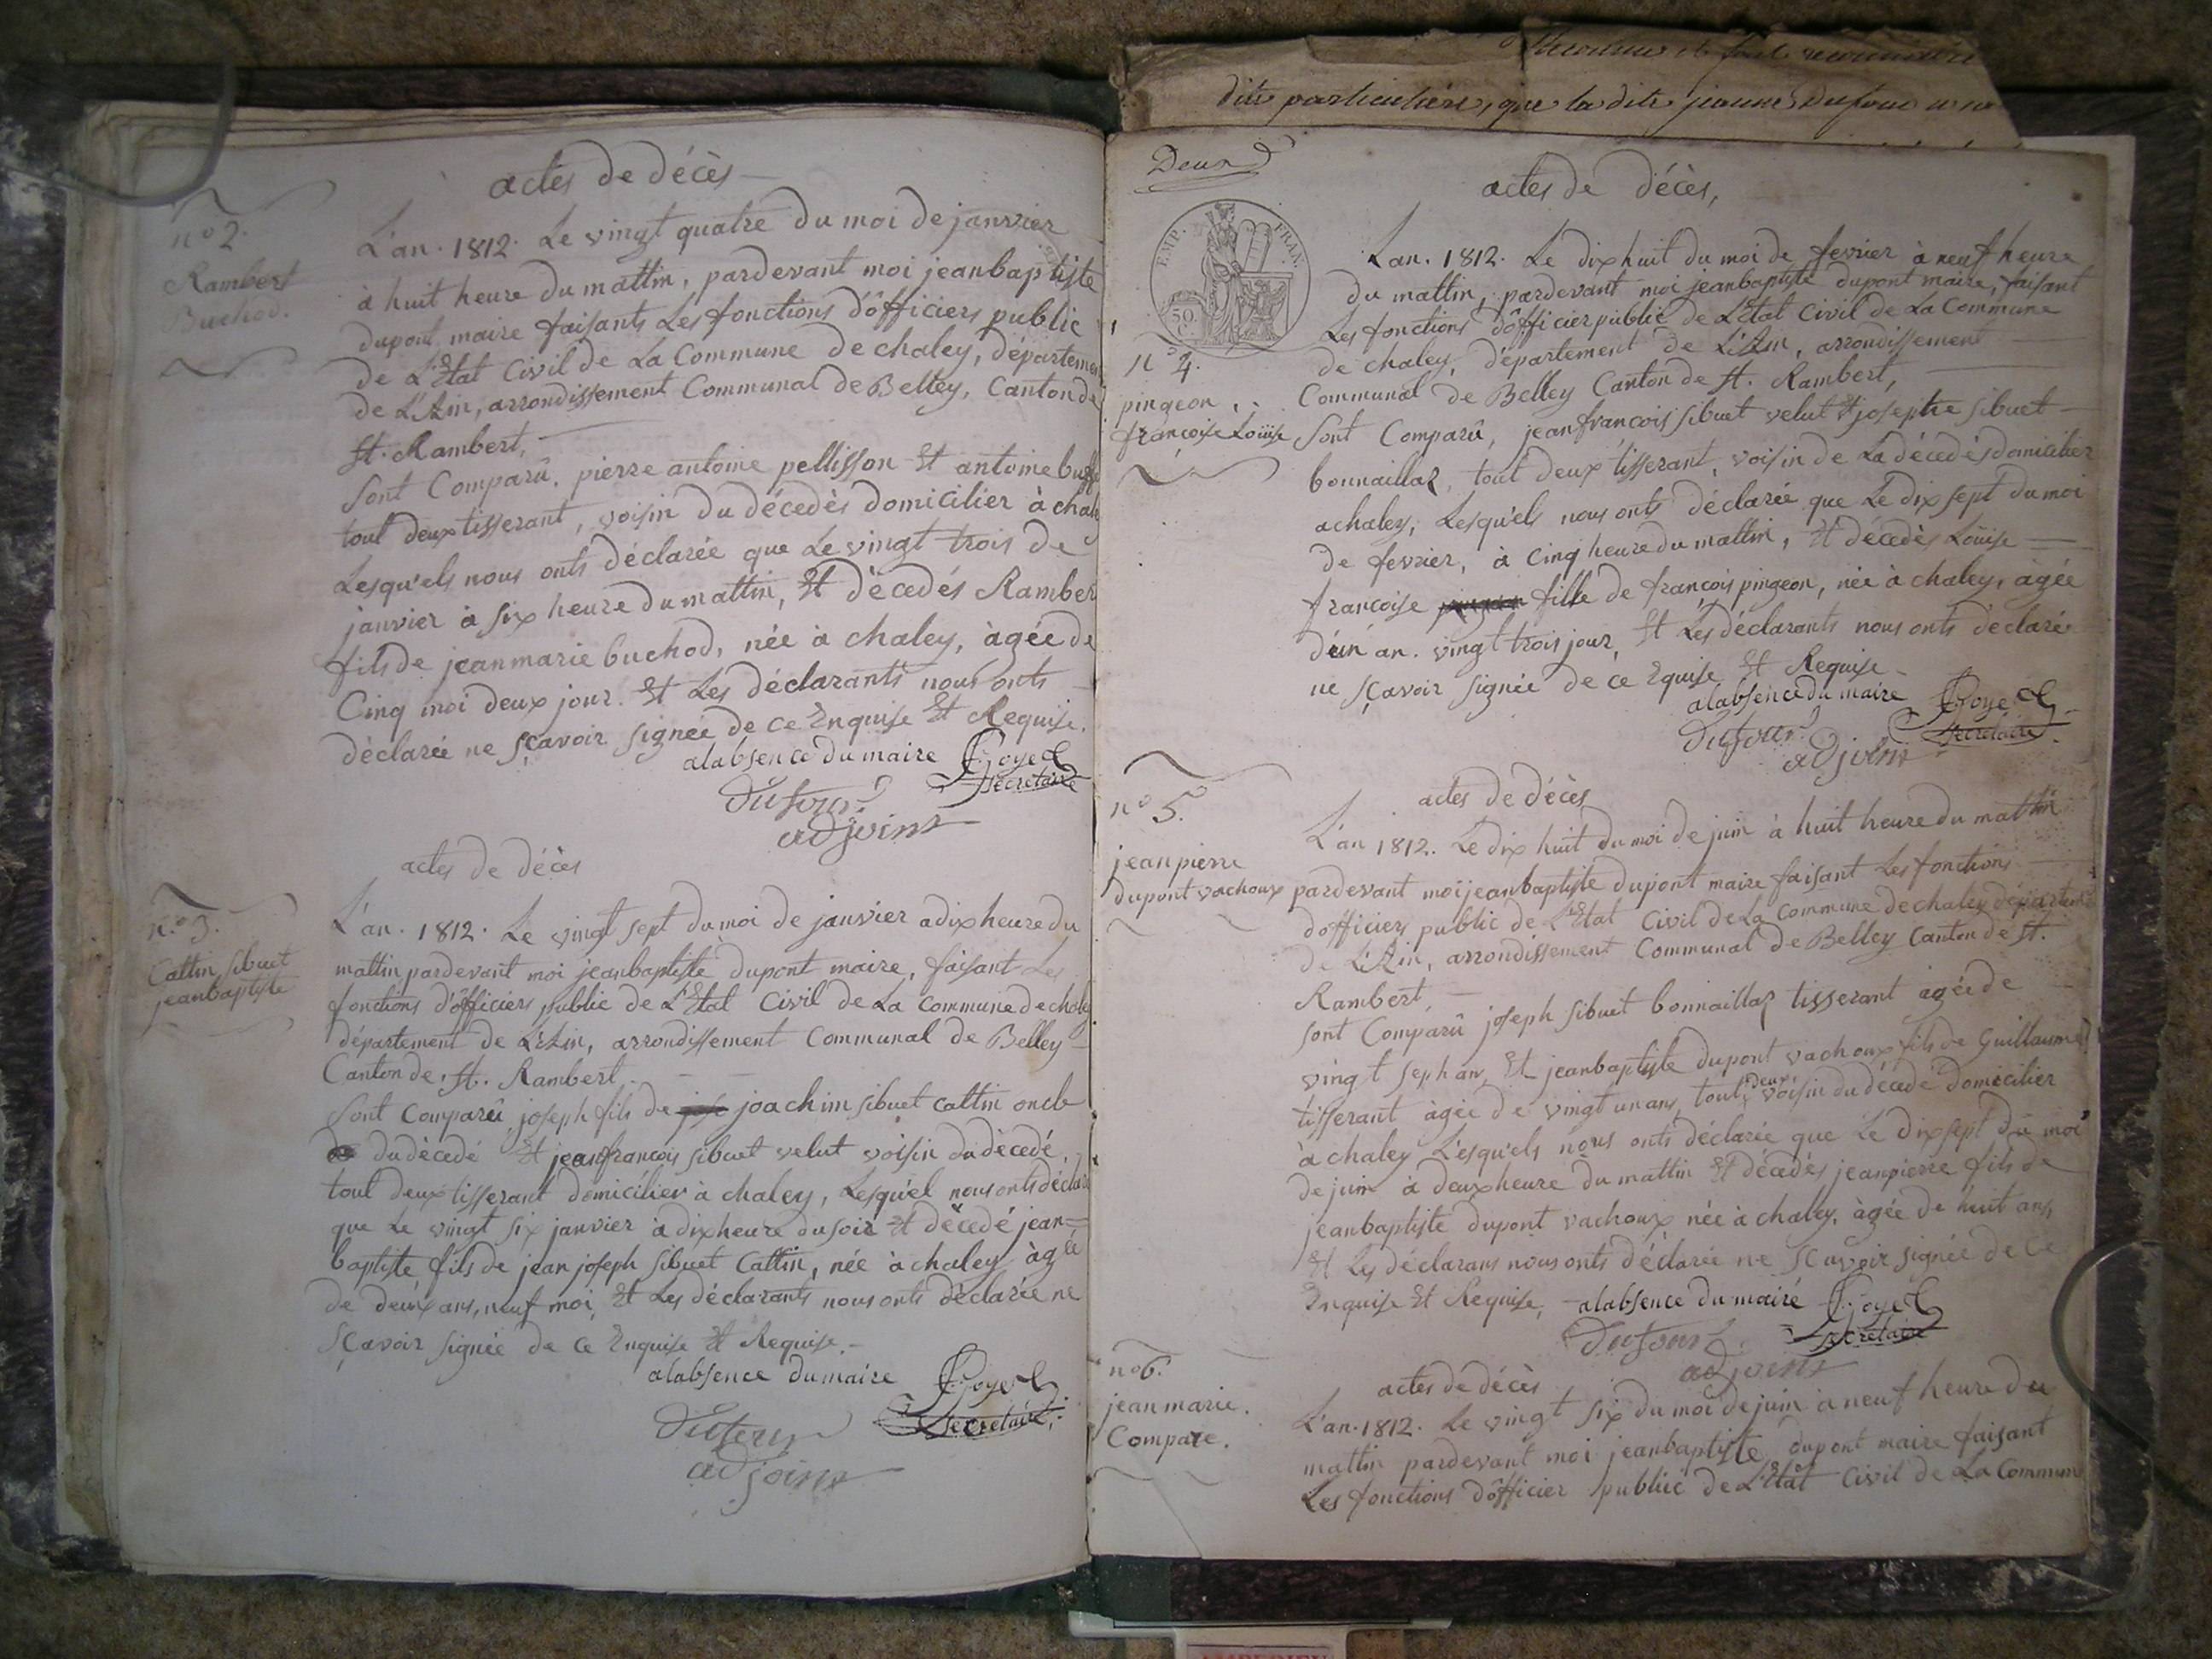 actes de décès
n° 2.
Rambert
Buchod.
L'an. 1812. Le vingt quatre du moi de janvier
à huit heure du mattin, pardevant moi jeanbaptiste
dupont maire faisants Les fonctions d'ôfficiers public
de L'Etat Civil de La Commune de chaley, départemen
de L'Ain, arrondissement Communal de Belley, Canton de
St. Rambert,
Sont Comparû, pierre antoine pellisson Et antoine
tout deux tisserant, voisin du décedès domicilier à chaley
Lesqu'els nous onts déclarée que Le vingt trois de
janvier à six heure du mattin, Et dècedés Rambert
fils de jeanmarie buchod, née à chaley, àgée de
Cinq moi deux jour. Et Les déclarants nous onts
déclarée ne sçavoir signée de ce Enquise Et Requise.
alabsence du maire Goyet
secretaire
Dufour
adjoint
actes de dècès
n.° 3.
Cattin, sibuet
jeanbaptiste
L'an. 1812. Le vingt sept du moi de janvier a dix heure du
mattin pardevant moi jeanbaptiste dupont maire, faisant Les
fonctions d'ôfficiers public de L'Etat Civil de La Commune de chaley
département de L'Ain, arrondissement Communal de Belley
Canton de. St. Rambert
Sont comparûe joseph fils de joachim sibuet cattin oncle
du dècedé Et jeanfrancois sibuet velut voisin du dècedé,
tout deux tisserant domicilier à chaley, Lesqu'el nous onts déclar
que Le vingt six janvier à dix heure du soir Et dècedé jean=
baptiste fils de jean joseph sibuet Cattin, née à chaley àgée
de deux ans, neuf moi, Et Les déclarants nous onts déclarée ne
sçavoir signée de ce Enquise Et Requise.
alabsence du maire Goyet
Secretaire
Dufour
adjoint
dite particuliere, que la dite jeanne Dufour
Deux
EMP. FRAN.
50 C.
actes de décès,
n° 4.
pingeon
françoise Loüise
L'an. 1812. Le dix huit du moi de fevrier à neuf heure
du mattin, pardevant moi jeanbaptiste dupont maire, faisant
Les fonctions d'ôfficier public de L'Etat Civil de La Commune
de chaley, département de L'Ain, arrondissement
Communal de Belley Canton de St. Rambert,
Sont Comparû, jeanfrancois sibuet velut Et josephe sibuet
bonnaillaz, tout deux tisserant, voisin de La décedès domicilier
a chaley, Lesqu'els nous onts déclarée que Le dix sept du moi
de fevrier, à cinq heure du mattin, Et décedès Loüise
françoise pingeon fille de françois pingeon, née à chaley, àgée
d'un an. vingt trois jour, Et Les déclarants nous onts déclarée
ne sçavoir signée de ce Equise Et Requise
alabsence du maire Goyet
secretaire
Dufour
adjoint
actes de décès
n° 5.
jeanpierre
dupont vachoux
L'an 1812. Le dix huit du moi de juin à huit heure du mattin
pardevant moi jeanbaptiste dupont maire faisant Les fonctions
d'officiers public de L'Etat Civil de La Commune de chaley départem
de L'Ain, arrondissement Communal de Belley Canton de St.
Rambert,
Sont Comparû joseph sibuet bonnaillaz tisserant àgée de
vingt sept an, Et jeanbaptiste dupont vachoux fils de Guillaume
tisserant àgée de vingt un ans, tout deux voisin du décedé domicilier
à chaley Lesqu'els nous onts déclarée que Le dix sept du moi
de juin à deux heure du mattin Et décedés jeanpierre fils de
jeanbaptiste dupont vachoux née à chaley, àgée de huit ans,
Et Les déclarans nous onts déclarée ne scavoir signée de ce
Enquise Et Requise, alabsence du maire Goyet
Secretaire
Dufour
adjoint
actes de décès
n° 6.
jean marie.
Compare.
L'an. 1812. Le vingt six du moi de juin a neuf heure du
mattin pardevant moi jeanbaptiste dupont maire faisant
Les fonctions d'ôfficier public de L'Etat Civil de La Commune